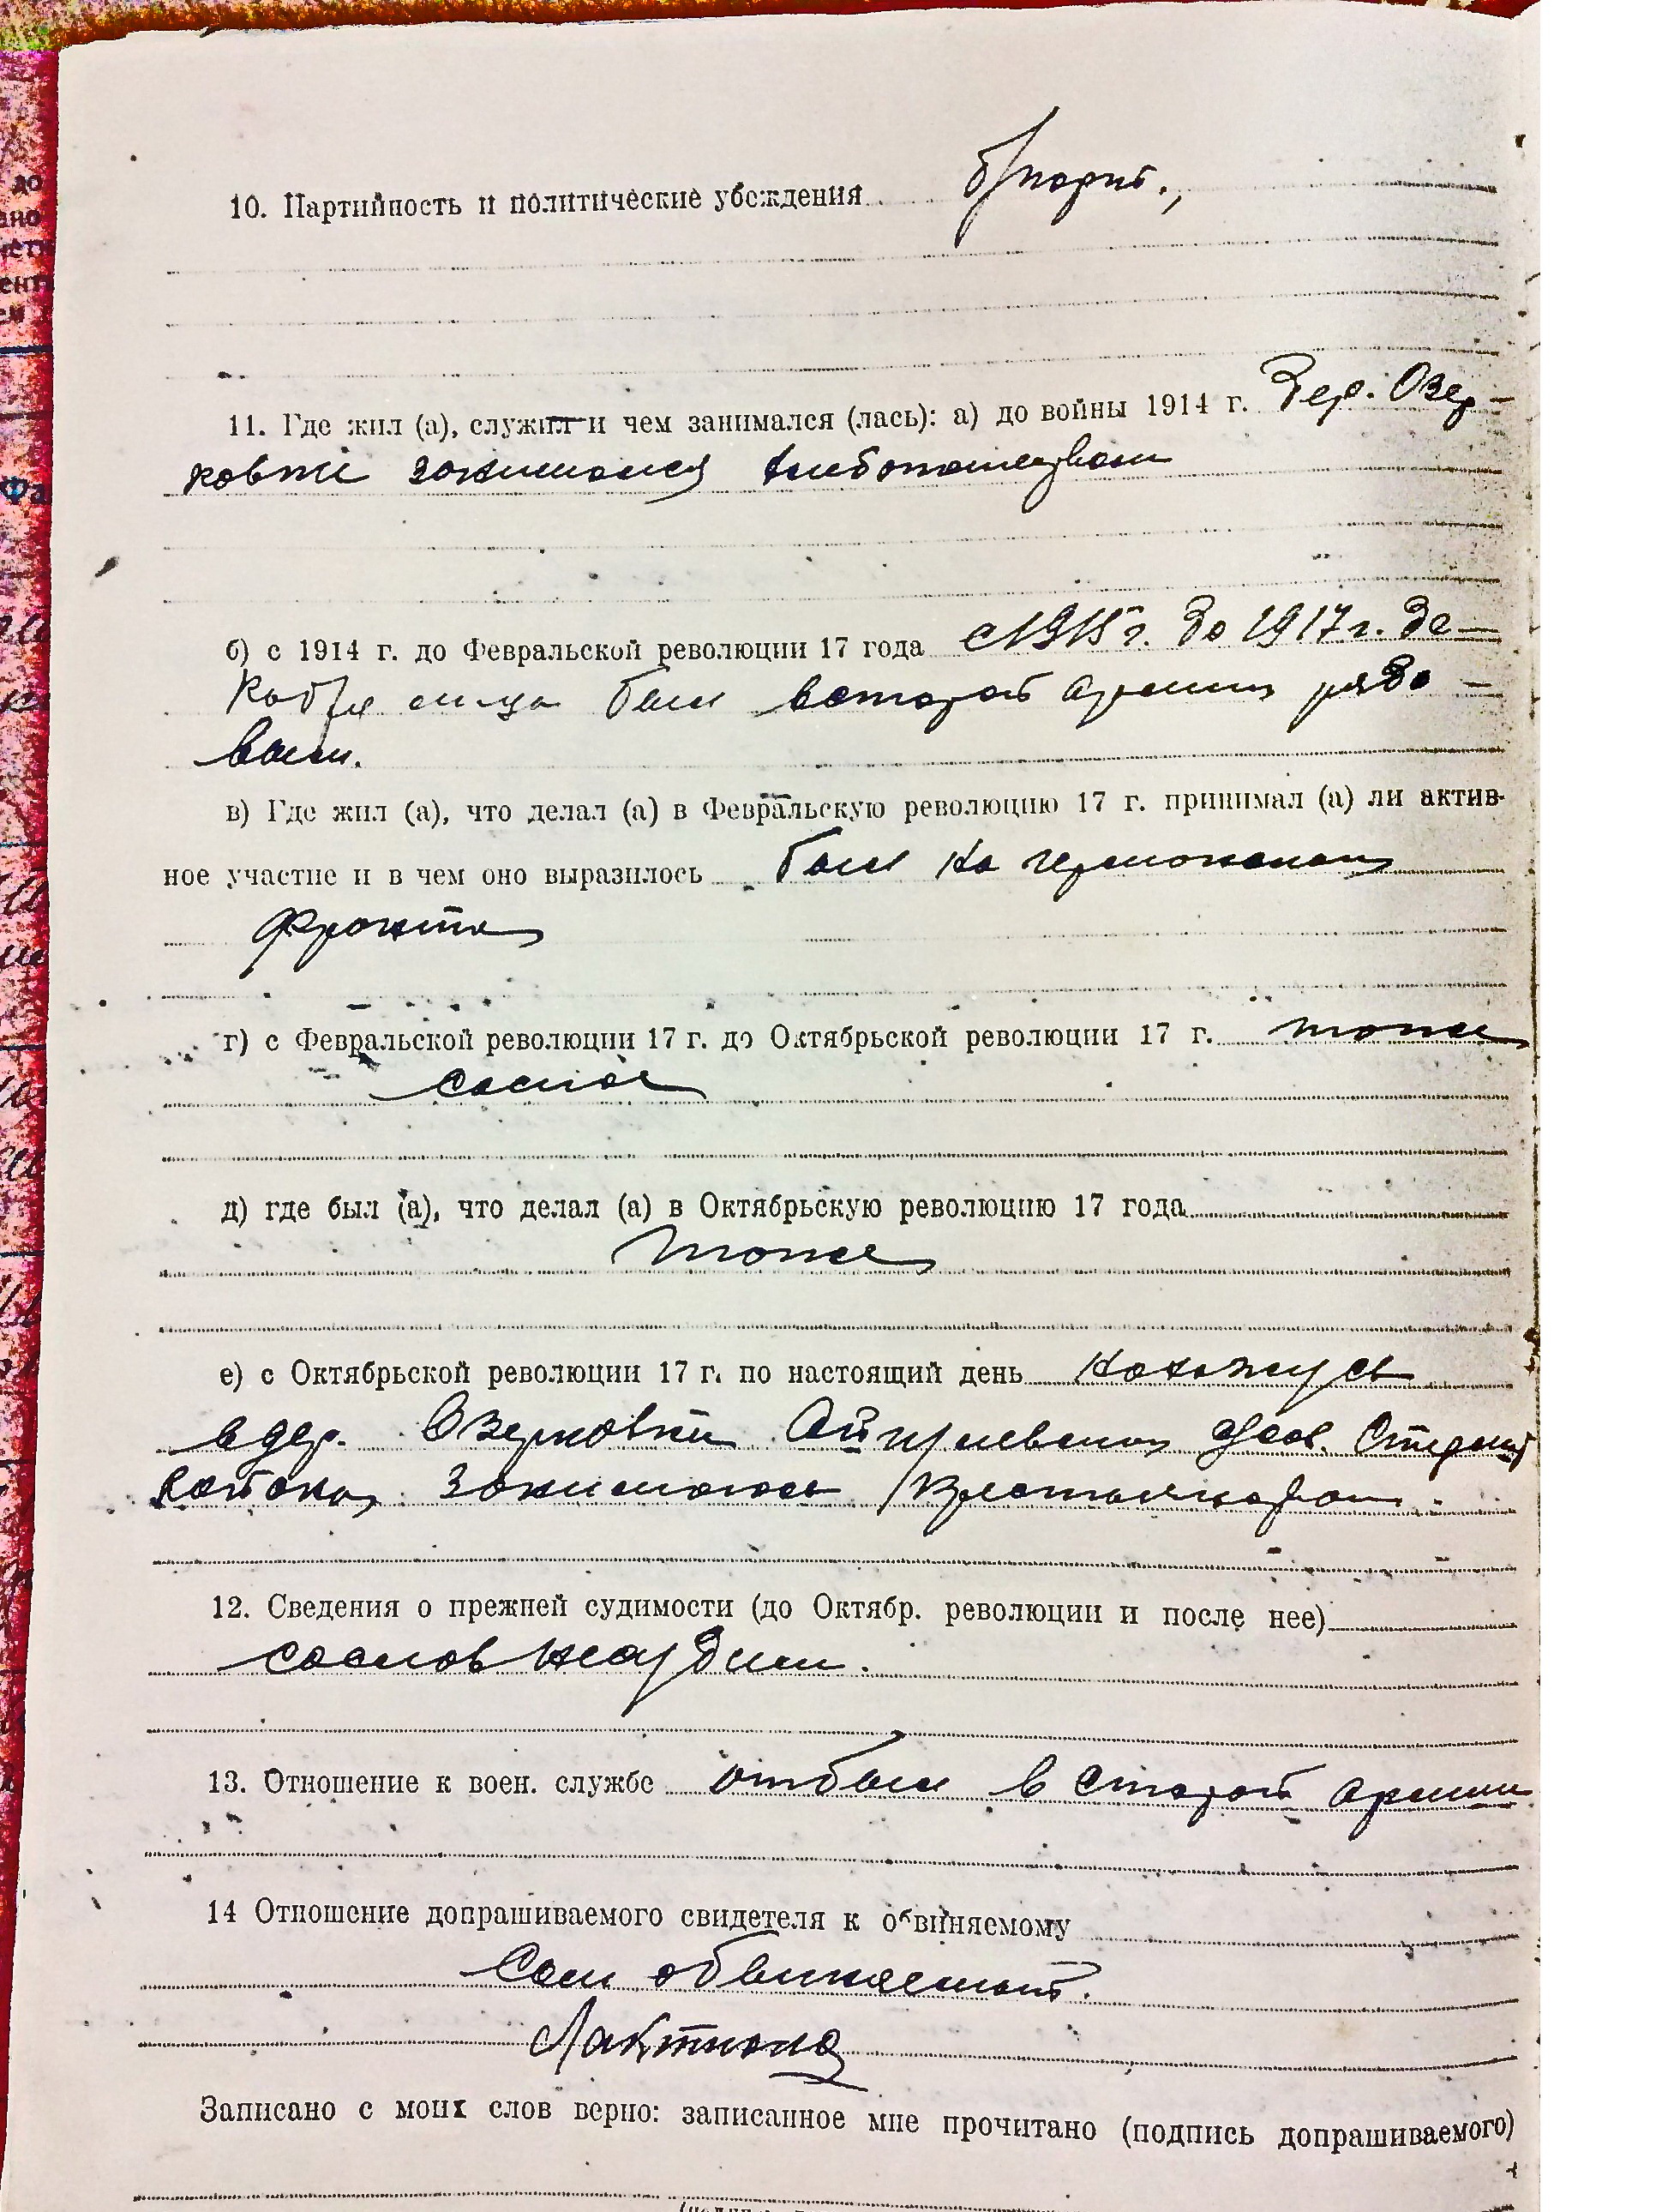 10. Партийность и политические убеждения б/парт.,
11. Где жил (а), служил и чем занимался (лась): а) до войны 1914 г. Дер. Озер-
ковки занимался хлебопашеством
б) с 1914 г. до Февральской революции 17 года с 1915 г. до 1917 г. де-
кабря м-ца был встарой армии рядо-
вым.
в) Где жил (а), что делал (а) в Февральскую революцию 17 г. принимал (а) ли актив-
ное участие и в чем оно выразилось был на германском
фронте
г) с Февральской революции 17 г. до Октябрьской революции 17 г. тоже
самое
д) где был (а), что делал (а) в Октябрьскую революцию 17 года
тоже
е) с Октябрьской революции 17 г. по настоящий день нахожусь
вдер. Озерковки
занимаюсь
12. Сведения о прежней судимости (до Октябр. революции и после нее)
сослов несудим.
13. Отношение к воен. службе отбыл в старой армии
14 Отношение допрашиваемого свидетеля к обвиняемому
Сам обвиняемый.
Лактионо
Записано с моих слов верно: записанное мне прочитано (подпись допрашиваемого)